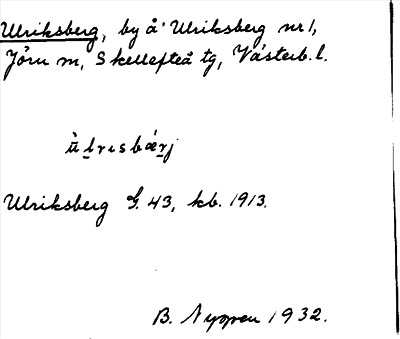 Ulriksberg, by å Ulriksberg nr 1,
Jörn sn, Skellefteå tg, Västerb. l.
ùlrɩsbǽrj
Ulriksberg G. 43, kb. 1913.
B. 1932.